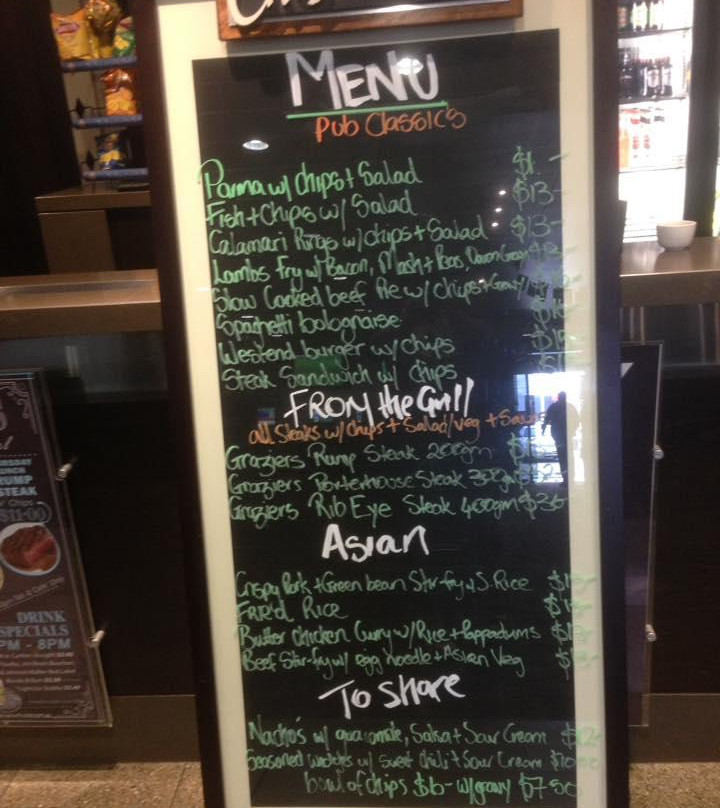 MENU
Pub Classics
Parma w/ chips + Salad
Fish + Chips w/ Salad $13-
Calamari Rings w/ chips + Salad $13-
Lambs Fry w/ Bacon, Mash + Peas, Onion Gravy
Slow Cooked beef Pie w/ chips + Gravy
Spaghetti bolognaise
Westend burger w/ chips
Steak Sandwich w/ chips
FROM the Grill
all Steaks w/ chips + Salad/veg + Sauce
Graziers Rump Steak 200gm
Graziers Porterhouse Steak 300gm
Graziers Rib Eye Steak 400gm $36-
Asian
Crispy Pork + Green bean Stir-fry w/ S. Rice
FRR'd Rice
Butter chicken Curry w/ Rice + Pappadums
Beef Stir-fry w/ egg noodle + Asian Veg
To Share
Nacho's w/ guacamole, Salsa + Sour Cream $12-
Seasoned wedges w/ sweet chilli + Sour Cream
bowl of chips $6- w/ gravy $7.50
RUMP
STEAK
$11.00
DRINK
SPECIALS
PM - 8PM